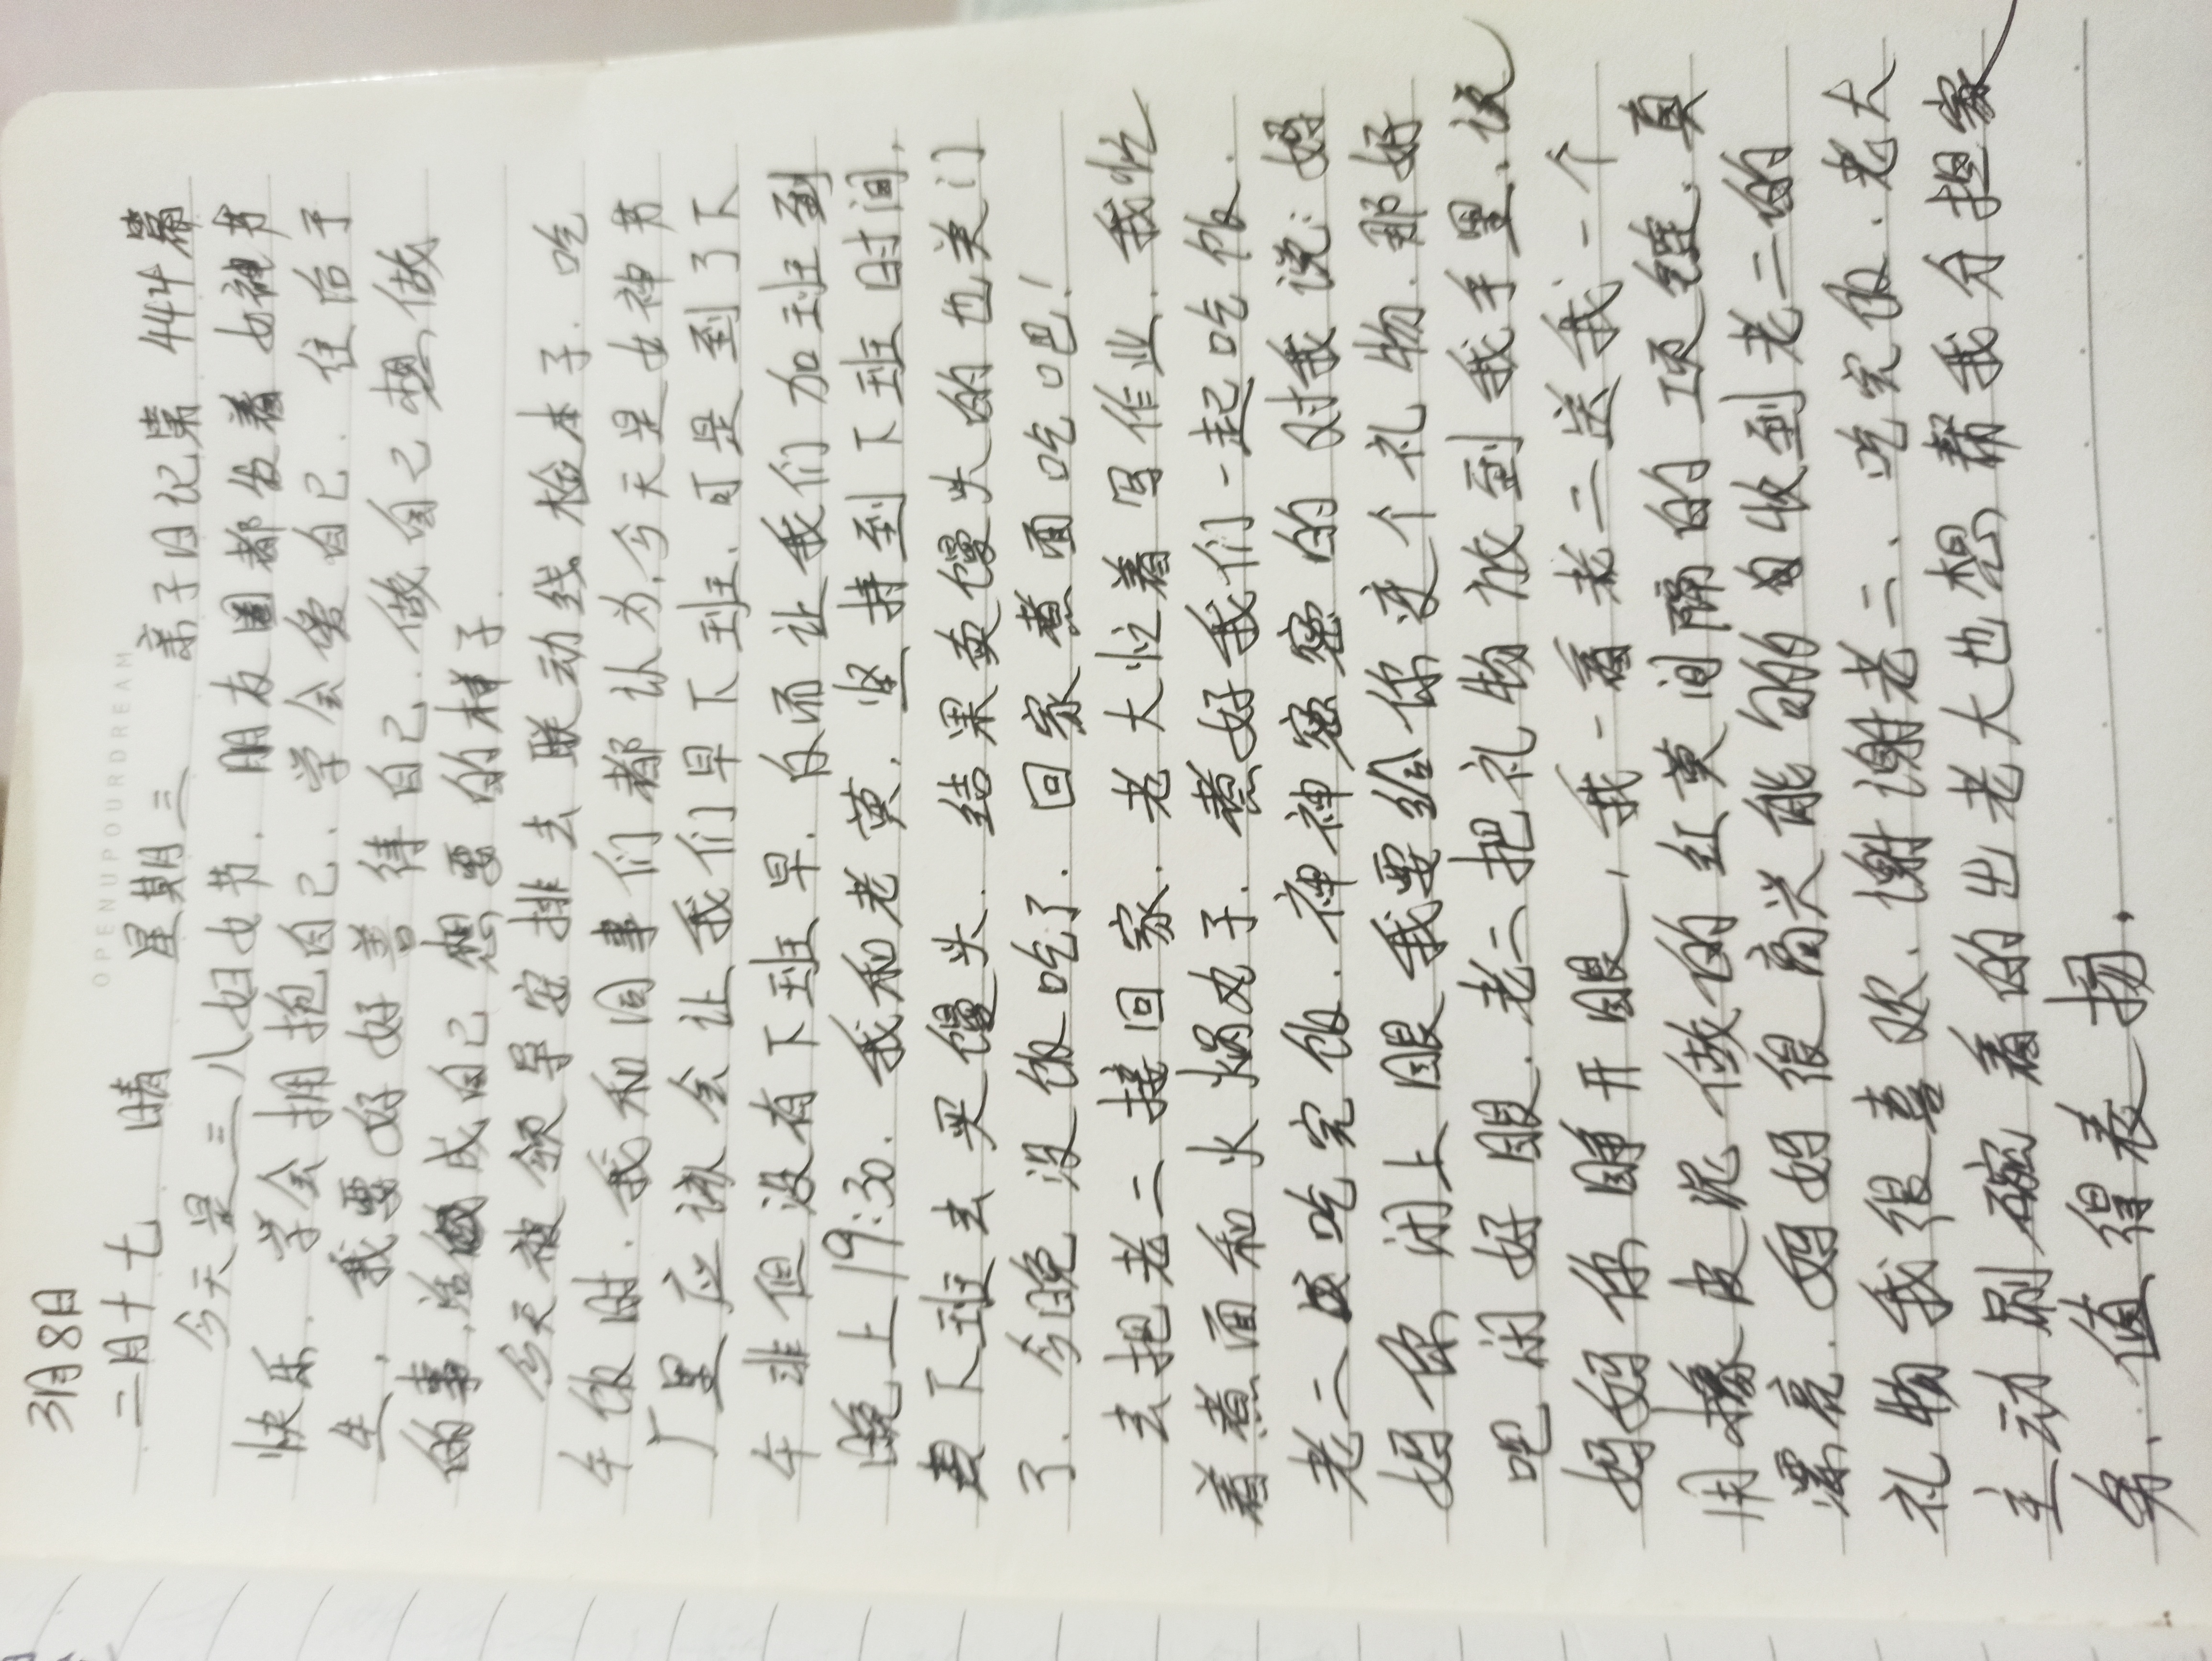 3月8日
OPENUPOURDREAM
二月十七 晴 星期三 亲子日记第444篇
今天是三八妇女节.朋友圈都发着女神节
快乐.学会拥抱自己.学会爱自己.往后余
生,我要好好善待自己.做自己想做
的事,活成自己想要的样子.
今天被领导安排去联动线检本子.吃
午饭时.我和同事们都认为,今天是女神节
厂里应该会让我们早下班.可是到了下
午非但没有下班早.反而让我们加班到
晚上19:30.我和老黄.坚持到下班时间,
下班去买馒头.结果卖馒头的也关门
了.今晚没饭吃了.回家煮面吃吧!
去把老二接回家.老大忙着写作业.我忙
着煮面和火锅丸子.煮好我们一起吃饭.
老二吃完饭.神神密密的对我说:妈
妈你闭上眼我要给你变个礼物.那好
吧闭好眼.老二把礼物放到我手里,说
妈妈你睁开眼,我一看老二送我一个
用橡皮泥做的红黄间隔的项链.真
漂亮.妈妈很高兴能收到老二的
礼物我很喜欢.谢谢老二.吃完饭.老大
主动刷碗看的出老大也想帮我分担家
务.值得表扬.